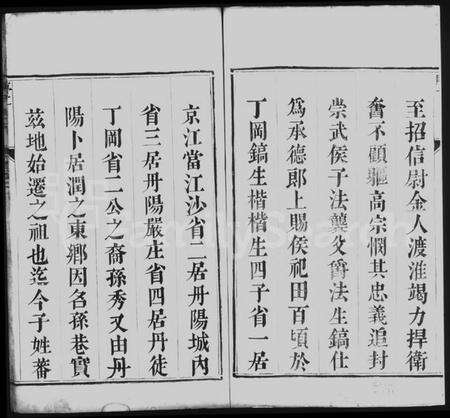 至招信尉金人渡淮竭力捍衛
奮不顧軀高宗憫其忠義追封
崇武侯子法龔父爵法生鎬仕
爲承德郎上賜侯祀田百頃於
丁岡鎬生楷楷生四子省一居
京江當江沙省二居丹陽城內
省三居丹陽嚴庄省四居丹徒
丁岡省二公之裔孫秀又由丹
陽卜居潤之東鄉因名孫巷實
茲地始遷之祖也迄今子姓蕃
FamilySearch